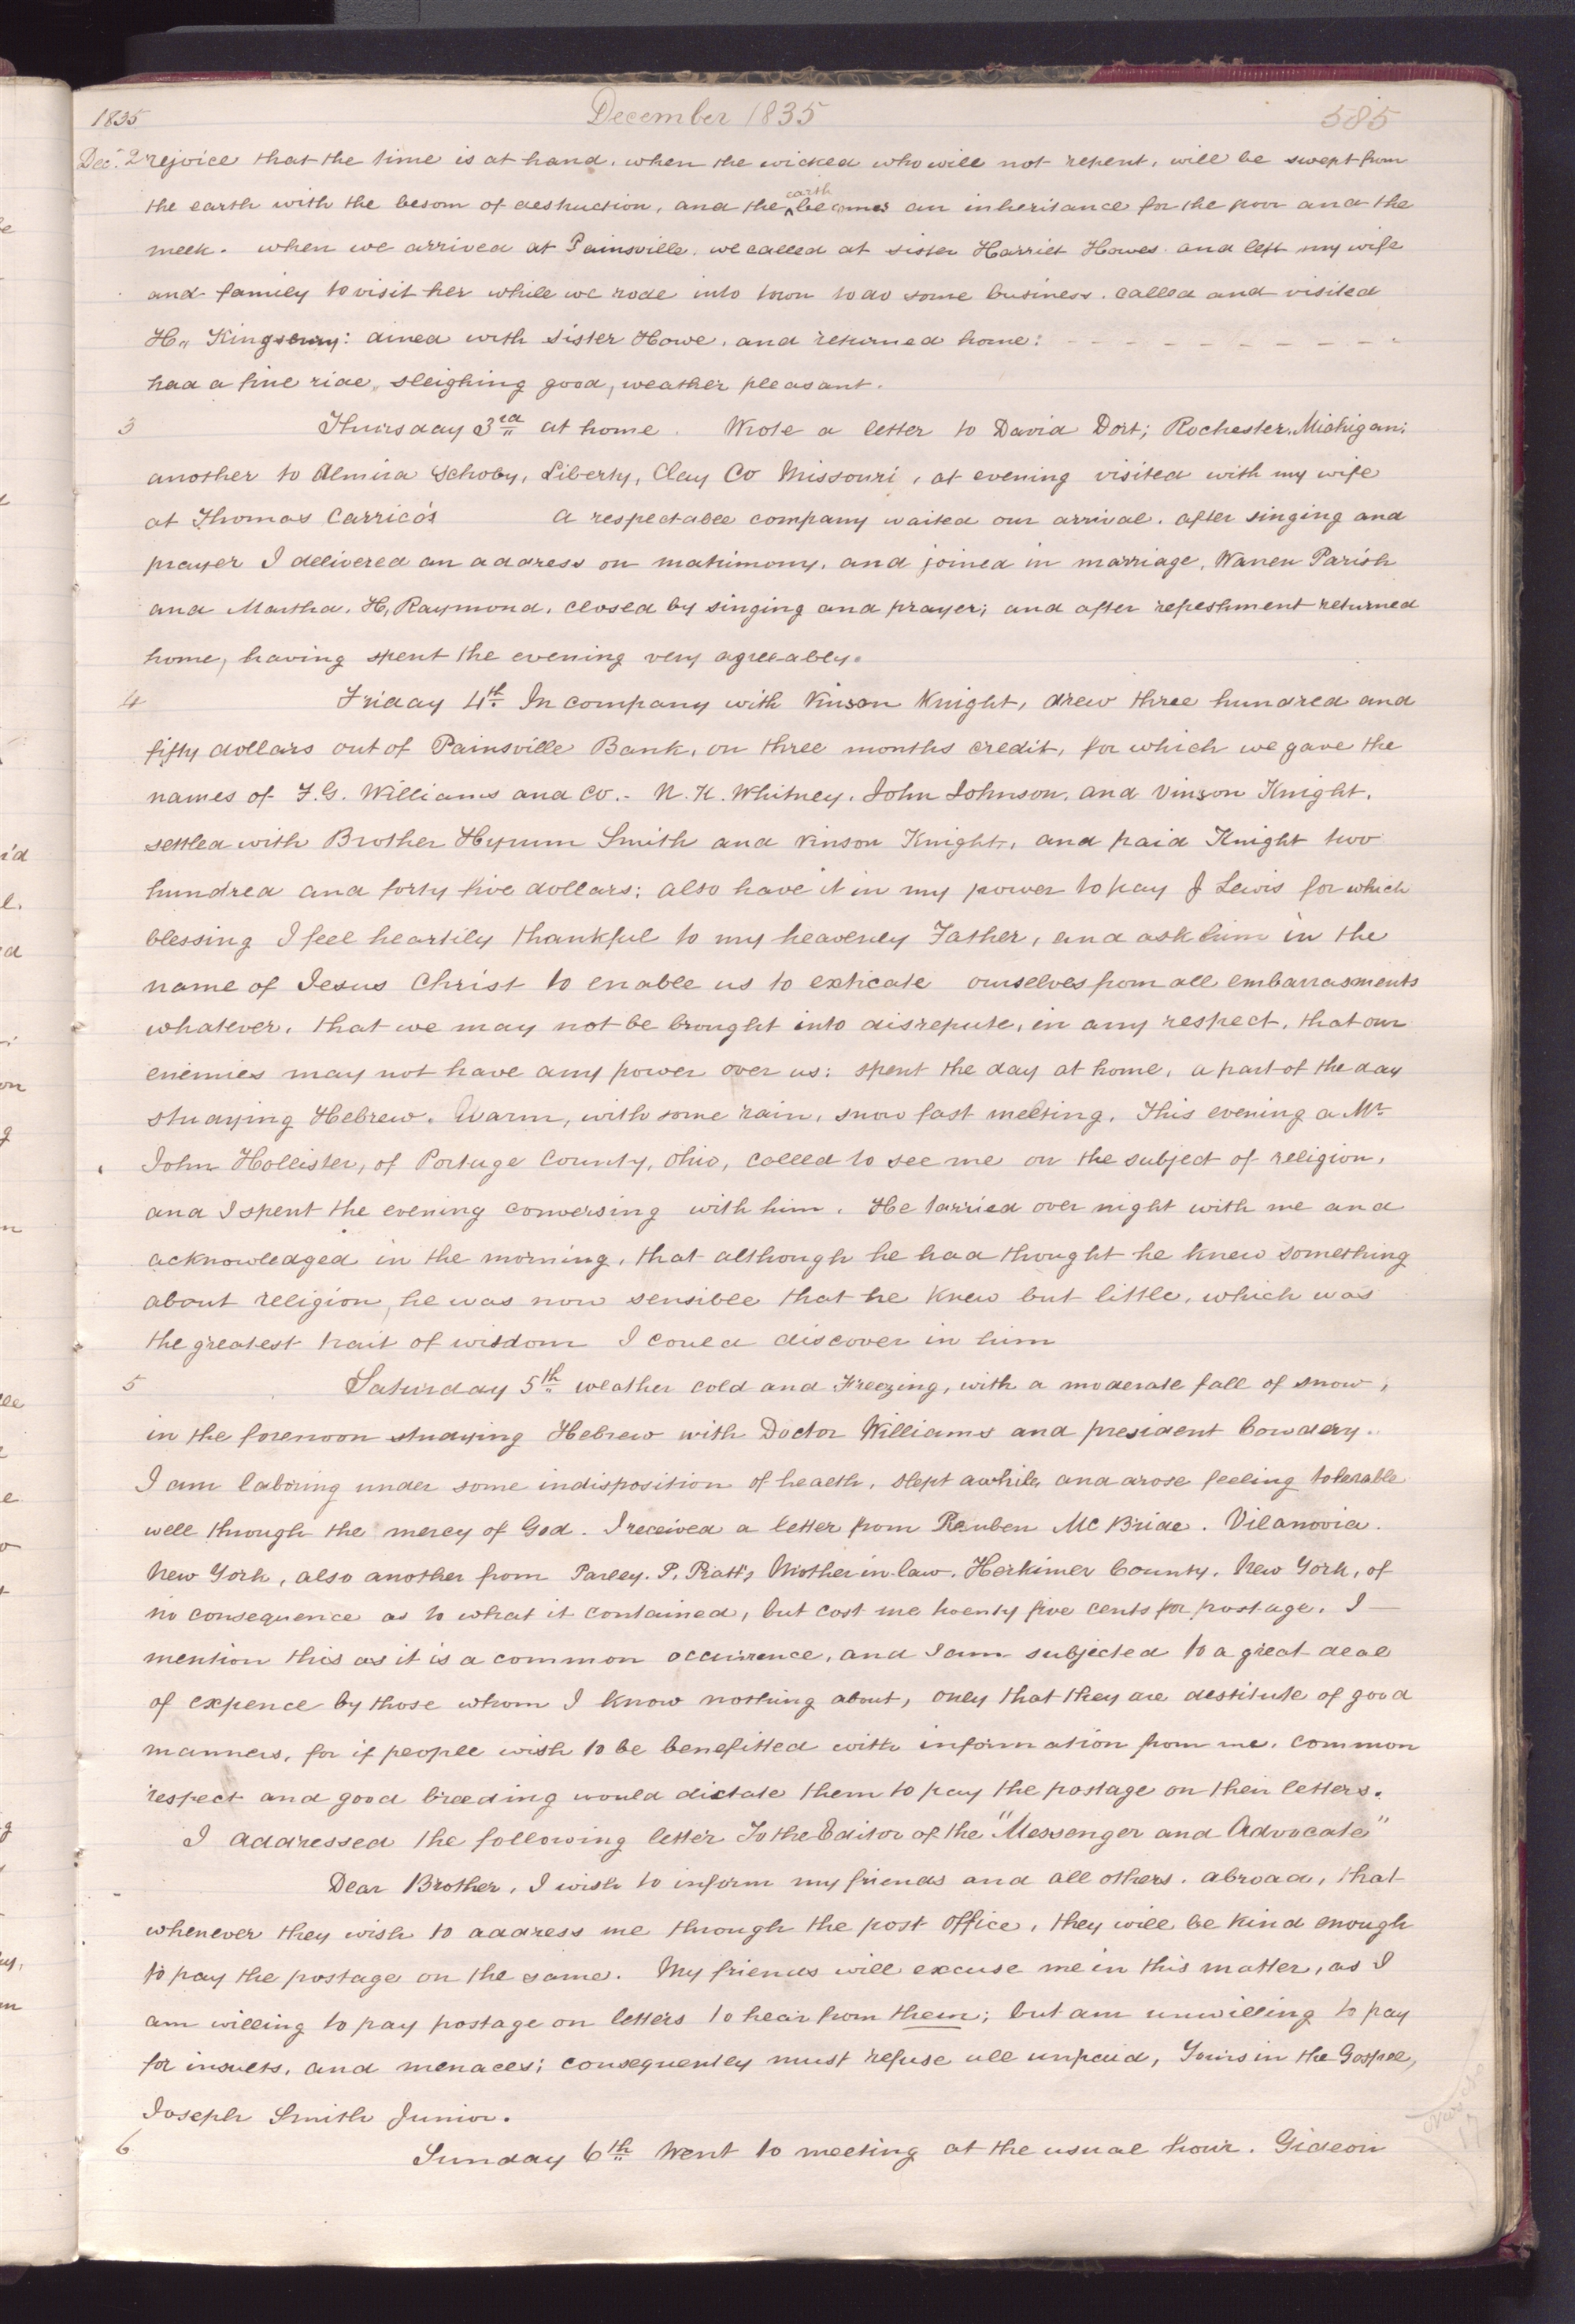 1835 December 1835 585
Dec. 2 rejoice that the time is at hand, when the wicked who will not repent, will be swept from
the earth with the besom of destruction, and the earth becomes an inheritance for the poor and the
meek. when we arrived at Painsville, we called at sister Harriet Howes and left my wife
and family to visit her while we rode into town to do some business. called and visited
H,, Kingsbury: dined with sister Howe, and returned home: - - - - - - - - - - -
had a fine ride,, sleighing good, weather pleasant.
3 Thursday 3rd at home. Wrote a letter to David Dort; Rochester, Michigan;
another to Almira Schoby, Liberty, Clay Co Missouri, at evening visited with my wife
at Thomas Carrico's A respectable company waited our arrival. after singing and
prayer I delivered an address on matrimony, and joined in marriage, Warren Parish
and Martha, H, Raymond, closed by singing and prayer; and after refreshment returned
home, having spent the evening very agreeably.
4 Friday 4th. In company with Vinson Knight, drew three hundred and
fifty dollars out of Painsville Bank, on three months credit, for which we gave the
names of F. G. Williams and Co.- N. K. Whitney, John Johnson, and Vinson Knight,
settled with Brother Hyrum Smith and Vinson Knight, and paid Knight two
hundred and forty five dollars; also have it in my power to pay J Lewis for which
blessing I feel heartily thankful to my heavenly Father, and ask him in the
name of Jesus Christ to enable us to extricate ourselves from all embarrasments
whatever, that we may not be brought into disrepute, in any respect, that our
enemies may not have any power over us: spent the day at home, a part of the day
studying Hebrew. Warm, with some rain, snow fast melting. This evening a Mr
John Hollister, of Portage County, Ohio, called to see me on the subject of religion,
and I spent the evening conversing with him. He tarried over night with me and
acknowledged in the morning, that although he had thought he knew something
about religion, he was now sensible that he knew but little, which was
the greatest trait of wisdom I could discover in him
5 Saturday 5th weather cold and Freezing, with a moderate fall of snow,
in the forenoon studying Hebrew with Doctor Williams and president Cowdery.
I am laboring under some indisposition of health, slept awhile, and arose feeling tolerable
well through the mercy of God. I received a letter from Reuben Mc Bride. Vilanovia.
New York, also another from Parley. P. Pratt's Mother in-law. Herkimer County. New York, of
no consequence as to what it contained, but cost me twenty five cents for postage. I —
mention this as it is a common occurrence, and I am subjected to a great deal
of expence by those whom I know nothing about, only that they are destitute of good
manners, for if people wish to be benefitted with information from me, common
respect and good breeding would dictate them to pay the postage on their letters.
I addressed the following letter To the Editor of the "Messenger and Advocate"
Dear Brother, I wish to inform my friends and all others. abroad, that
whenever they wish to address me through the post office, they will be kind enough
to pay the postage on the same. My friends will excuse me in this matter, as I
am willing to pay postage on letters to hear from them; but am unwilling to pay
for insults, and menaces; consequently must refuse all unpaid, Yours in the Gospel,
Joseph Smith Junior.
6 Sunday 6th Went to meeting at the usual hour. Gideon